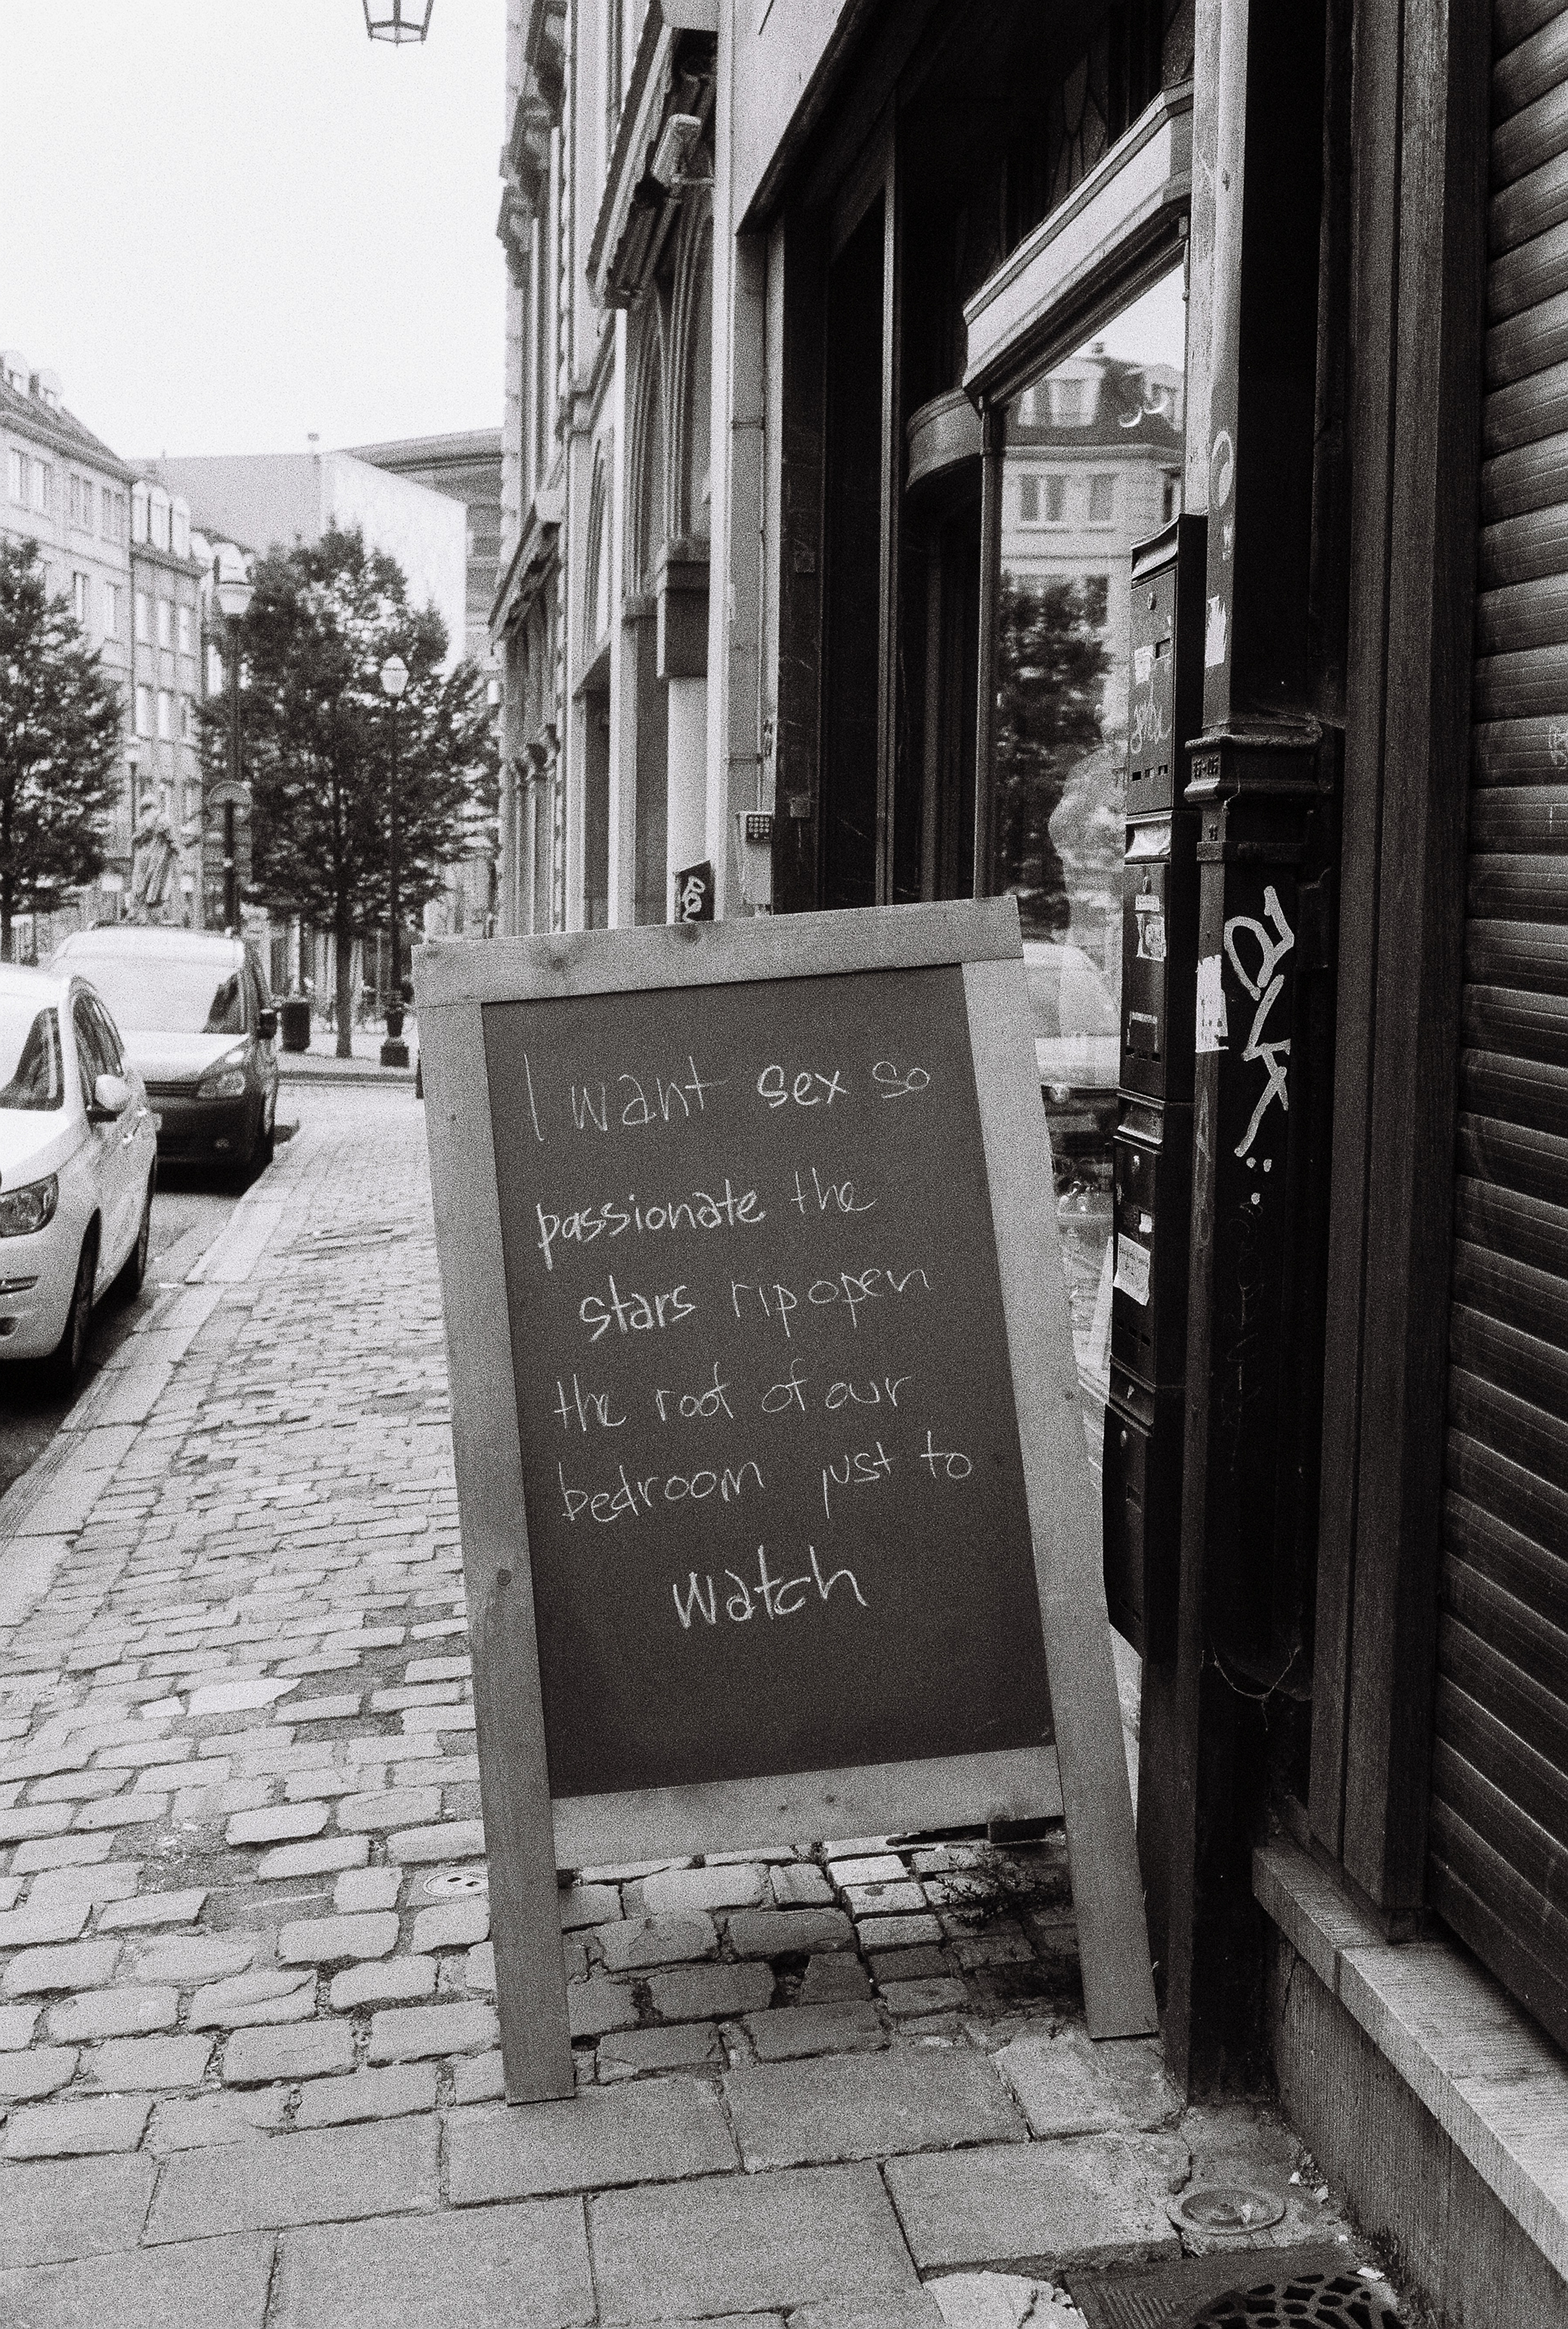 I want sex so
passionate the
stars rip open
the roof of our
bedroom just to
watch